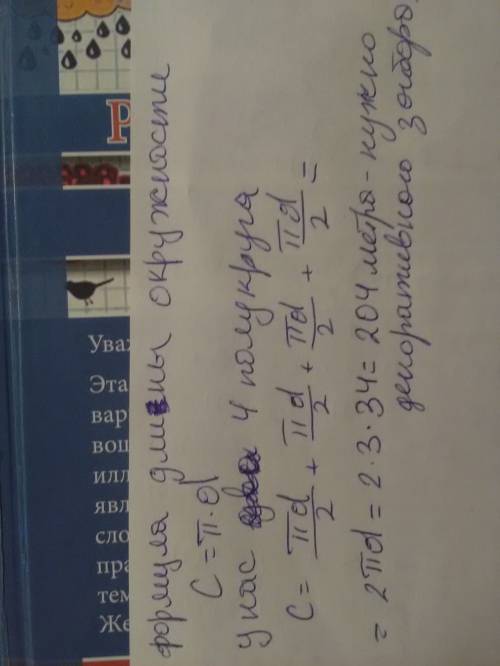 формула длины окружности
C = π·d
у нас 4 полукруга
C = πd/2 + πd/2 + πd/2 + πd/2 =
= 2πd = 2·3·34 = 204 метра - нужно
декоративного забора.
Р
Ува
Эта
вар
вош
илл
явл
сло
пра
тем
Же